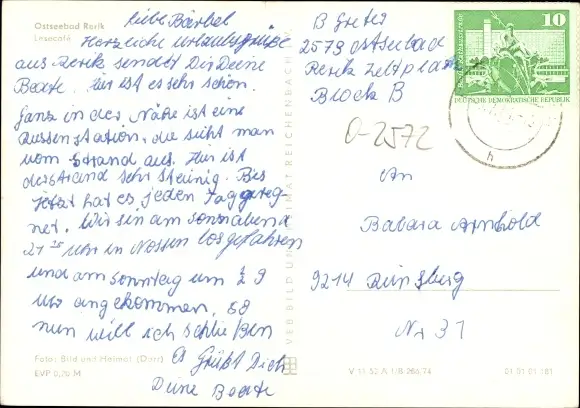 Ostseebad Rerik
Lesecafé
liebe Bärbel
Herzliche Urlaubsgrüße
aus Rerik sendet Dir Deine
Beate. hir ist es sehr schön.
Ganz in der Nähe ist eine
Russenstation, die siht man
vom Strand aus. Hir ist
der Strand sehr steinig. Bis
jetzt hat es jeden Tag gereg-
net. Wir sin am sonnabend
21 Uhr in Nossen losgefahren
und am Sonntag um 9
Uhr angekommen. So
nun will ich schließen
Es Grüßt Dich
Deine Beate
Foto: Bild und Heimat (Darr)
EVP 0,20 M
VEB BILD UND HEIMAT REICHENBACH
B Greter
2573 Ostseebad
Rerik Zeltplatz
Block B
O-2572
An
Babara Arnhold
9214
Nr 31
V 11 50 A 1/B 266/74
01 01 01 181
10
DEUTSCHE DEMOKRATISCHE REPUBLIK
h